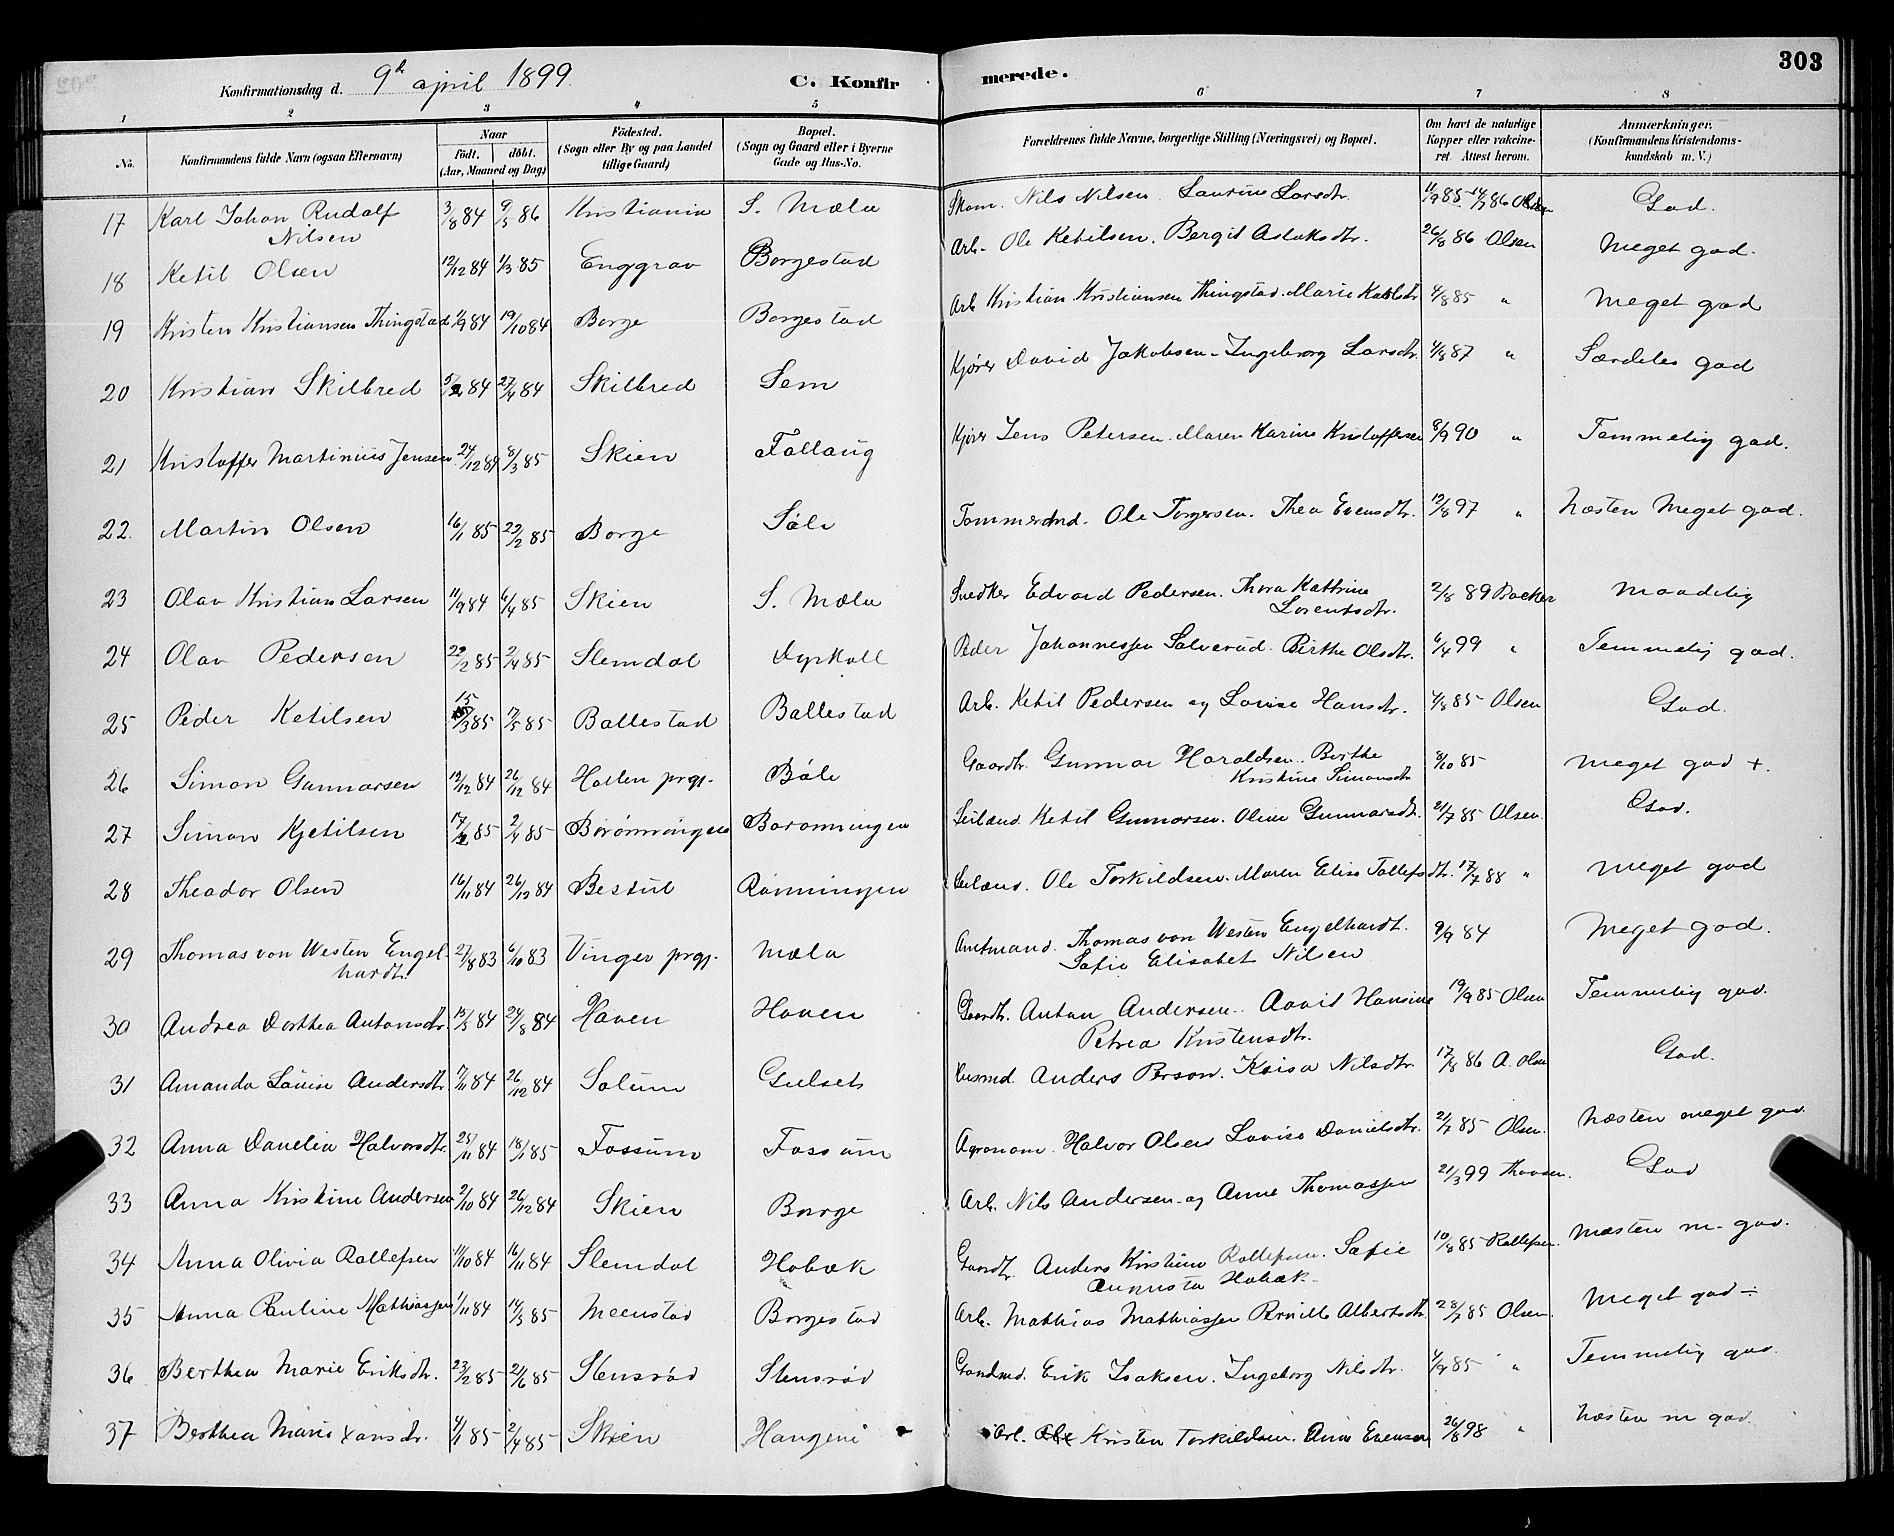 303
Konfirmationsdag d. 9de april 1899. C. Konfirmerede.
1 2 3 4 5 6 7 8
No. Konfirmandens fulde Navn (ogsaa Efternavn) Naar Födt. döbt. (Aar, Maaned og Dag) Födested. (Sogn eller By og paa Landet tillige Gaard) Bopæl. (Sogn og Gaard eller i Byerne Gade og Hus-No. Forældrenes fulde Navne, borgerlige Stilling (Næringsvei) og Bopæl. Om havt de naturlige Kopper eller vakcineret. Attest herom. Anmærkninger. (Konfirmandens Kristendomskundskab m. V.)
17 Karl Johan Rudolf Nilsen 3/8 84 9/5 86 Kristiania S. Mæla Skom. Nils Nilsen. Laurine Larsdtr. 11/9 85 - 14/7 86 Olsen God.
18 Ketil Olsen 12/12 84 1/3 85 Enggrav Borgestad Arb. Ole Ketilsen. Bergit Aslaksdtr. 26/8 86 Olsen Meget god.
19 Kristen Kristiansen Thingstad 1/9 84 19/10 84 Borge Borgestad Arb. Kristian Kristiansen Thingstad. Marie 4/8 85 " Meget god
20 Kristian Skilbred 84 27/4 84 Skilbred Sem Kjører David Jakobsen - Ingeborg Larsdtr. 4/8 87 " Særdeles god
21 Kristoffer Martinius Jensen 24/12 84 8/3 85 Skien Follaug Kjører Jens Petersen. Maren Karine Kristoffersen 8/9 90 " Temmelig god.
22. Martin Olsen 16/1 85 22/2 85 Borge Søli Tømmerhnd. Ole Torgersen. Thea Evensdtr. 12/8 97 " Næsten Meget god.
23 Olav Kristian Larsen 11/9 84 6/4 85 Skien S. Mæla Snedker Edvard Pedersen. Thora Kathrine Lorentsdtr. 2/8 89 Backer Maadelig
24 Olav Pedersen 22/2 85 2/4 85 Slemdal Dyrkoll Peder Johannessen Solverud. Birthe Olsdtr. 6/4 99 " Temmelig god.
25 Peder Ketilsen 15/3 85 17/5 85 Ballestad Ballestad Arb. Ketil Pedersen og Louise Hansdtr. 4/8 85 Olsen God.
26 Simon Gunnarsen 12/12 84 26/12 84 Hollen prgj. Bøle Gaardbr. Gunnar Haraldsen. Birthe Kristine Simonsdtr 8/10 85 Meget god +.
27 Simon Kjetilsen 17/2 85 2/4 85 Borønningen Borønningen Leilænd. Ketil Gunnarsen. Oline Gunnarsdtr. 21/7 85 Olsen. God.
28 Theodor Olsen 16/11 84 26/12 84 Bestul Rønningen Leilænd. Ole Torkildsen. Maren Elise Tollefsdtr. 17/7 88 " Meget god
29 Thomas von Westen Engelhardt. 27/8 83 6/10 83 Vinger prgj. Mæla Amtmand. Thomas von Westen Engelhardt. Sofie Elisabet Nilsen 9/9 84 Meget god.
30 Andrea Dorthea Antonsdtr 84 24/8 84 Haven Haven Gaardbr. Anton Andersen. Hansine Petrea Kristensdtr. 19/9 85 Olsen Temmelig god.
31 Amanda Louise Andersdtr 7/11 84 26/12 84 Solum Gulset Husmd. Anders Person. Kaisa Nilsdtr. 17/8 86 A. Olsen God.
32 Anna Danelia Halvorsdtr. 25/11 84 18/1 85 Fossum Fossum Agronom. Halvor Olsen Lovise Danielsdtr. 21/7 85 Olsen. Næsten meget god.
33 Anna Kristine Andersen 2/10 84 26/12 84 Skien Borge Arb. Nils Andersen og Anne Thomassen 21/3 99 God
34 Anna Olivia Rollefsen 11/10 84 16/11 84 Slemdal Hobæk Gaardbr. Anders Kristian Rollefsen. Sofie Augusta Hobæk 10/8 85 Rollefsen. Næsten m. god.
35 Anna Pauline Mathiassen 1/11 84 14/3 85 Meenstad Borgestad Arb. Mathias Mathiassen Pernille Albertsdtr. 28/7 85 Olsen. Meget god ÷
36 Berthea Marie Eriksdtr. 23/2 85 21/6 85 Stensrød Stensrød Gaardmd. Erik Isaksen. Ingeborg Nilsdtr. 4/9 85 " Temmelig god.
37 Berthea Marie 4/1 85 2/4 85 Skien Arb. Kristen Torkildsen. Anne Evensen 26/8 98 " Næsten m god.